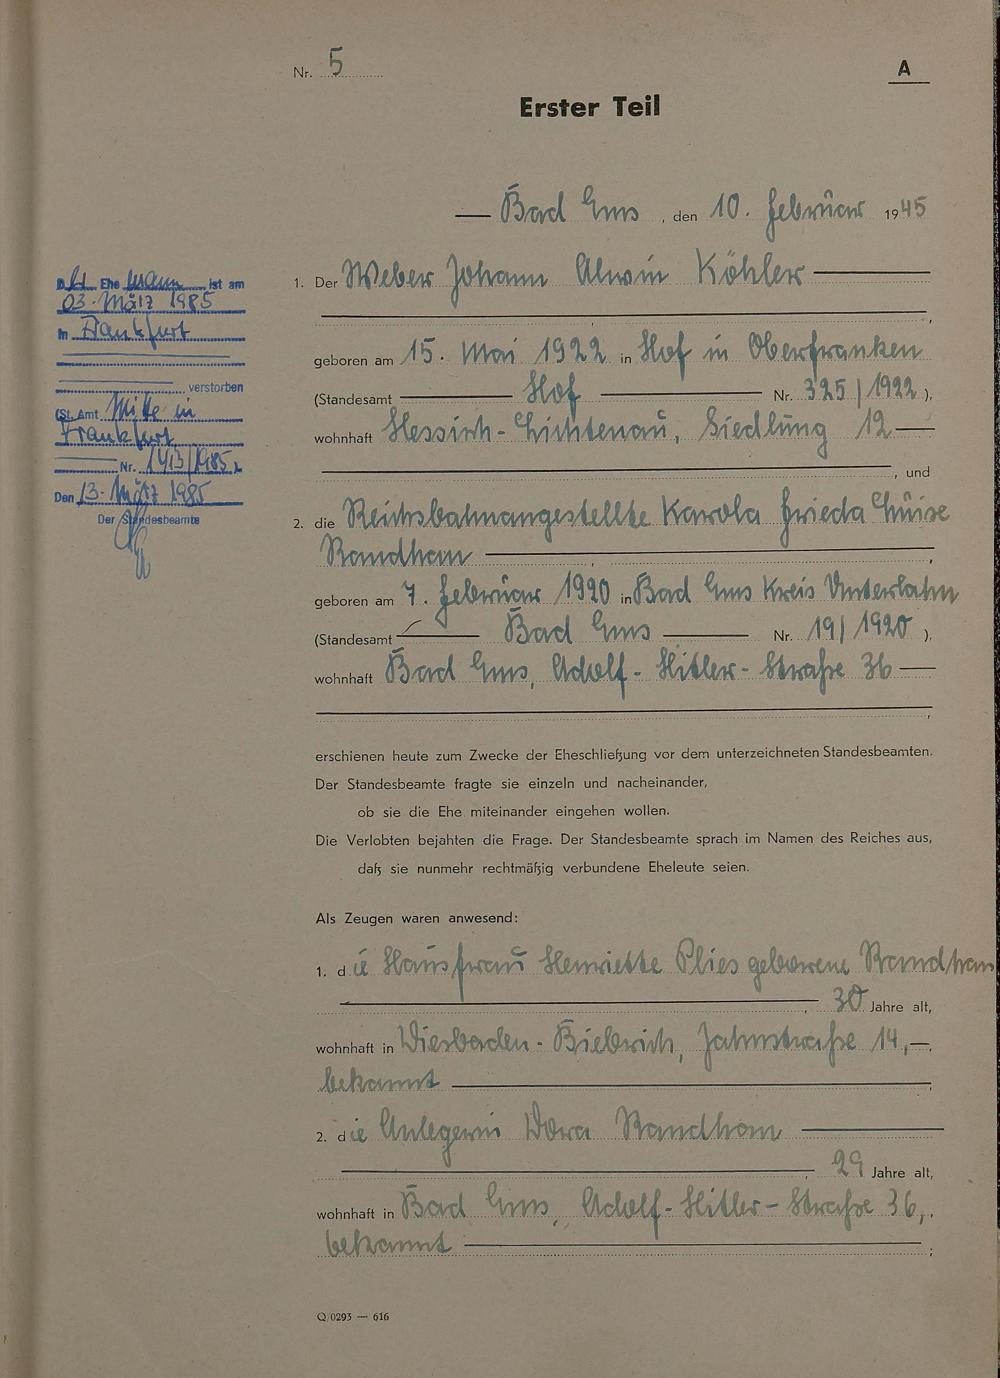 Nr. 5
A
Erster Teil
Bad Ems, den 10. Februar 1945
1. Der Weber Johann Alwin Köhler
geboren am 15. Mai 1922 in Hof in Oberfranken
(Standesamt Hof Nr. 325/1922),
wohnhaft Hessisch-Lichtenau, Siedlung 12
, und
2. die Reichsbahnangestellte Karola Frieda Luise
Randhan
geboren am 7. Februar 1920 in Bad Ems Kreis Unterlahn
(Standesamt Bad Ems Nr. 19/1920),
wohnhaft Bad Ems, Adolf-Hitler-Straße 36
erschienen heute zum Zwecke der Eheschließung vor dem unterzeichneten Standesbeamten.
Der Standesbeamte fragte sie einzeln und nacheinander,
ob sie die Ehe miteinander eingehen wollen.
Die Verlobten bejahten die Frage. Der Standesbeamte sprach im Namen des Reiches aus,
daß sie nunmehr rechtmäßig verbundene Eheleute seien.
Als Zeugen waren anwesend:
1. die Hausfrau Henriette Plies geborene Randhan
, 30 Jahre alt,
wohnhaft in Wiesbaden-Biebrich, Jahnstraße 14,
bekannt ;
2. die Anlegerin Dora Randhan
, 29 Jahre alt,
wohnhaft in Bad Ems, Adolf-Hitler-Straße 36,
bekannt ;
Q/0293 — 616
D. Ehemann ist am
03. März 1985
in Frankfurt
verstorben
(St. Amt Mitte in
Frankfurt
Nr. 1413/1985)
Den 13. März 1985
Der Standesbeamte